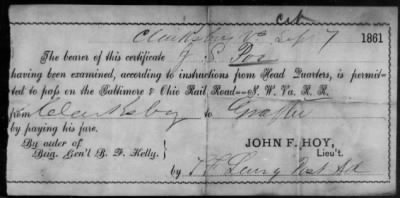 Clarksburg Va Sept 7 1861
The bearer of this certificate J. S. Poe
having been examined, according to instructions from Head Quarters, is permit-
ted to pass on the Baltimore & Ohio Rail Road—N. W. Va. R. R.
from Clarksburg to Grafton
by paying his fare.
By order of
Brig. Gen'l B. F. Kelly. JOHN F. HOY,
Lieu't.
by